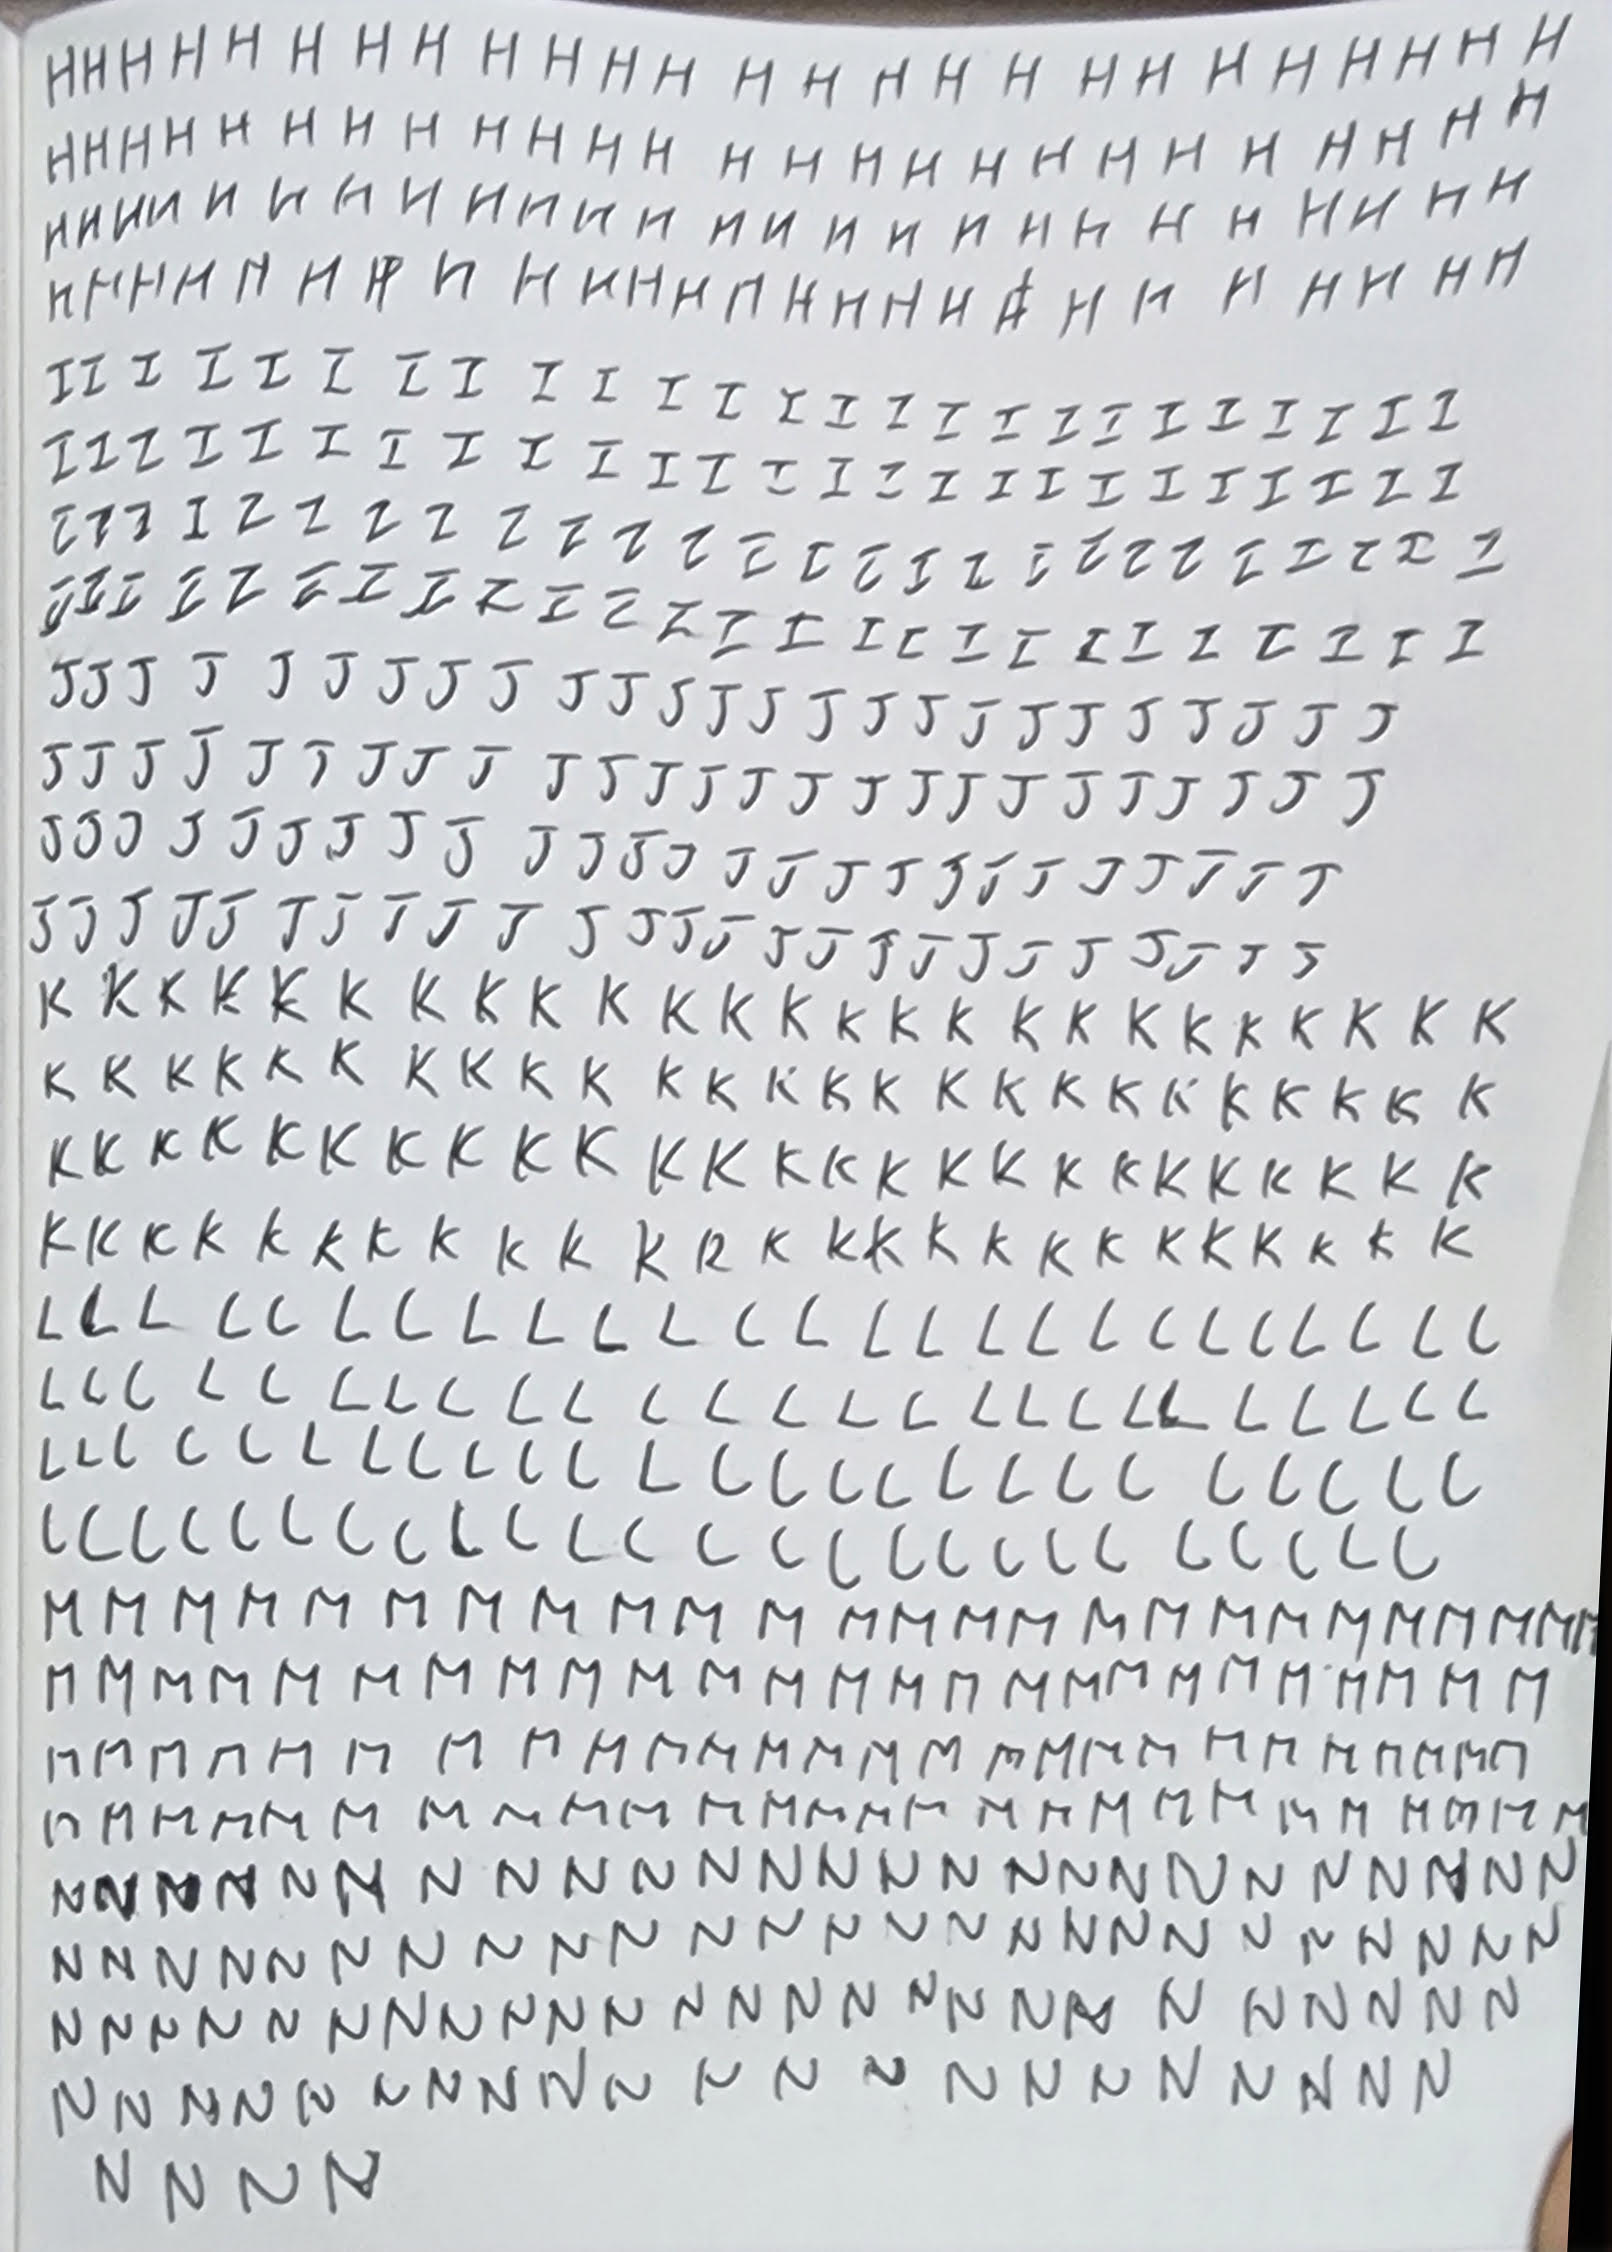 H H H H H H H H H H H H H H H H H H H H H H H H H
H H H H H H H H H H H H H H H H H H H H H H H H H
H H H H H H H H H H H H H H H H H H H H H H H H H
H H H H H H H H H H H H H H H H H H H H H H H H H
I I I I I I I I I I I I I I I I I I I I I I I I I
I I I I I I I I I I I I I I I I I I I I I I I I I
I I I I I I I I I I I I I I I I I I I I I I I I I I
I I I I I I I I I I I I I I I I I I I I I I I I I
J J J J J J J J J J J J J J J J J J J J J J J J J
J J J J J J J J J J J J J J J J J J J J J J J J J
J J J J J J J J J J J J J J J J J J J J J J J J J
J J J J J J J J J J J J J J J J J J J J J J J J J
K K K K K K K K K K K K K K K K K K K K K K K K K
K K K K K K K K K K K K K K K K K K K K K K K K K
K K K K K K K K K K K K K K K K K K K K K K K K K
K K K K K K K K K K K K K K K K K K K K K K K K K
L L L L L L L L L L L L L L L L L L L L L L L L L
L L L L L L L L L L L L L L L L L L L L L L L L L
L L L L L L L L L L L L L L L L L L L L L L L L L
L L L L L L L L L L L L L L L L L L L L L L L L L
M M M M M M M M M M M M M M M M M M M M M M M M M
M M M M M M M M M M M M M M M M M M M M M M M M M
M M M M M M M M M M M M M M M M M M M M M M M M M
M M M M M M M M M M M M M M M M M M M M M M M M M
N N N N N N N N N N N N N N N N N N N N N N N N N
N N N N N N N N N N N N N N N N N N N N N N N N N
N N N N N N N N N N N N N N N N N N N N N N N N N
N N N N N N N N N N N N N N N N N N N N N
N N N N